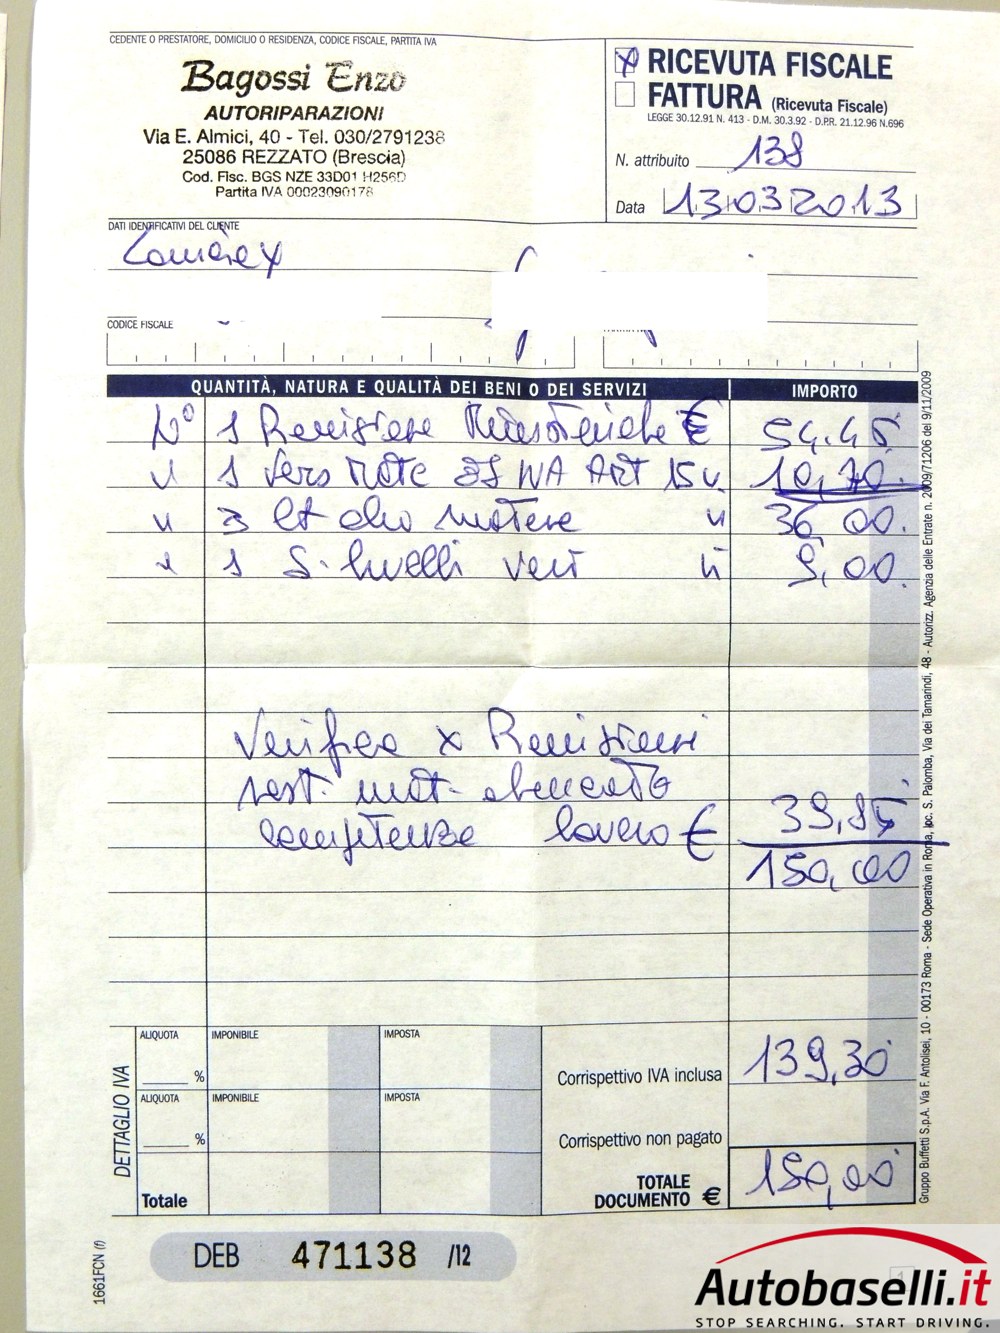 CEDENTE O PRESTATORE, DOMICILIO O RESIDENZA, CODICE FISCALE, PARTITA IVA
Bagossi Enzo
AUTORIPARAZIONI
Via E. Almici, 40 - Tel. 030/2791238
25086 REZZATO (Brescia)
Cod. Fisc. BGS NZE 33D01 H256D
Partita IVA 00023090178
X RICEVUTA FISCALE
FATTURA (Ricevuta Fiscale)
LEGGE 30.12.91 N. 413 - D.M. 30.3.92 - D.P.R. 21.12.96 N.696
N. attribuito 138
Data 13 03 2013
DATI IDENTIFICATIVI DEL CLIENTE
CODICE FISCALE
QUANTITÀ, NATURA E QUALITÀ DEI BENI O DEI SERVIZI IMPORTO
N° 1 Revisione € 54.45
1 Vers ART 15 10,70
3 lt olio motore 36,00
1 S. livelli vari 9,00
Verifica x Revisione
competenze lavoro € 39,85
150,00
DETTAGLIO IVA
ALIQUOTA IMPONIBILE IMPOSTA
%
Corrispettivo IVA inclusa 139,30
ALIQUOTA IMPONIBILE IMPOSTA
%
Corrispettivo non pagato
Totale
TOTALE DOCUMENTO € 150,00
1661FCN (f)
DEB 471138 /12
Gruppo Buffetti S.p.A. Via F. Antolisei, 10 - 00173 Roma - Sede Operativa in Roma, loc. S. Palomba, Via dei Tamarindi, 48 - Autorizz. Agenzia delle Entrate n. 2009/71206 del 9/11/2009
Autobaselli.it
STOP SEARCHING. START DRIVING.